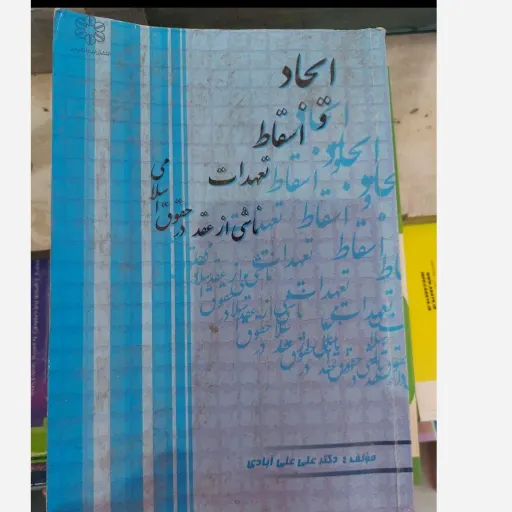 ایجاد
و اسقاط
تعهدات
ناشی از عقد در حقوق اسلامی
مؤلف : دکتر علی علی آبادی